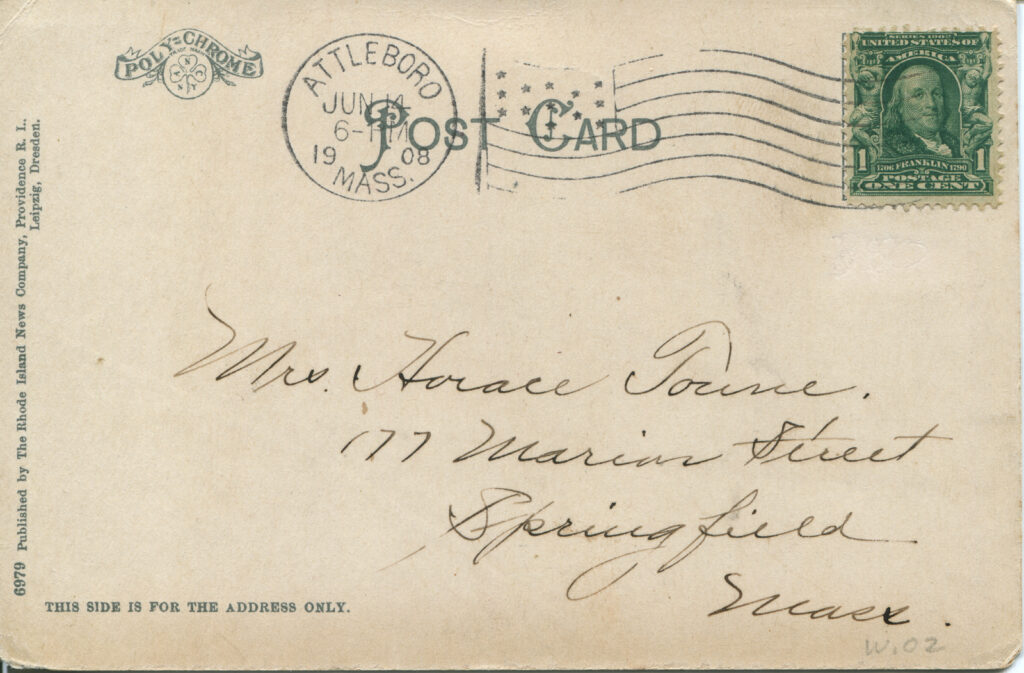 POLY-CHROME
ATTLEBORO
JUN 14
6-
19 08
MASS.
POST CARD
SERIES 1902
UNITED STATES OF
AMERICA
1 1706 FRANKLIN 1790 1
POSTAGE
ONE CENT
6979 Published by The Rhode Island News Company, Providence R. I.,
Leipzig, Dresden.
Mrs. Horace Towne.
177 Marion Street
Springfield
Mass.
THIS SIDE IS FOR THE ADDRESS ONLY.
W.02